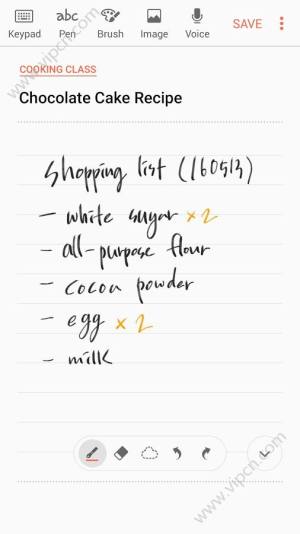 Keypad Pen Brush Image Voice SAVE
abc
COOKING CLASS
Chocolate Cake Recipe
Shopping list (160513)
- white sugar ×2
- all-purpose flour
- cocoa powder
- egg ×2
- milk
www.vipcn.com
www.vipcn.com